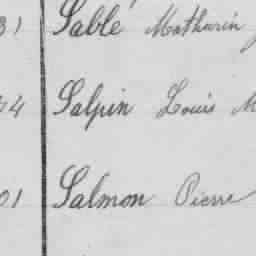 31 Sablé Mathurin
04 Salpin Louis M
01 Salmon Pierre